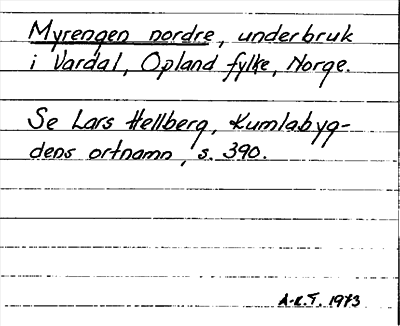 Myrengen nordre, underbruk
i Vardal, Opland fylke, Norge.
Se Lars Hellberg, Kumlabyg-
dens ortnamn, s. 390.
A-R.T. 1973